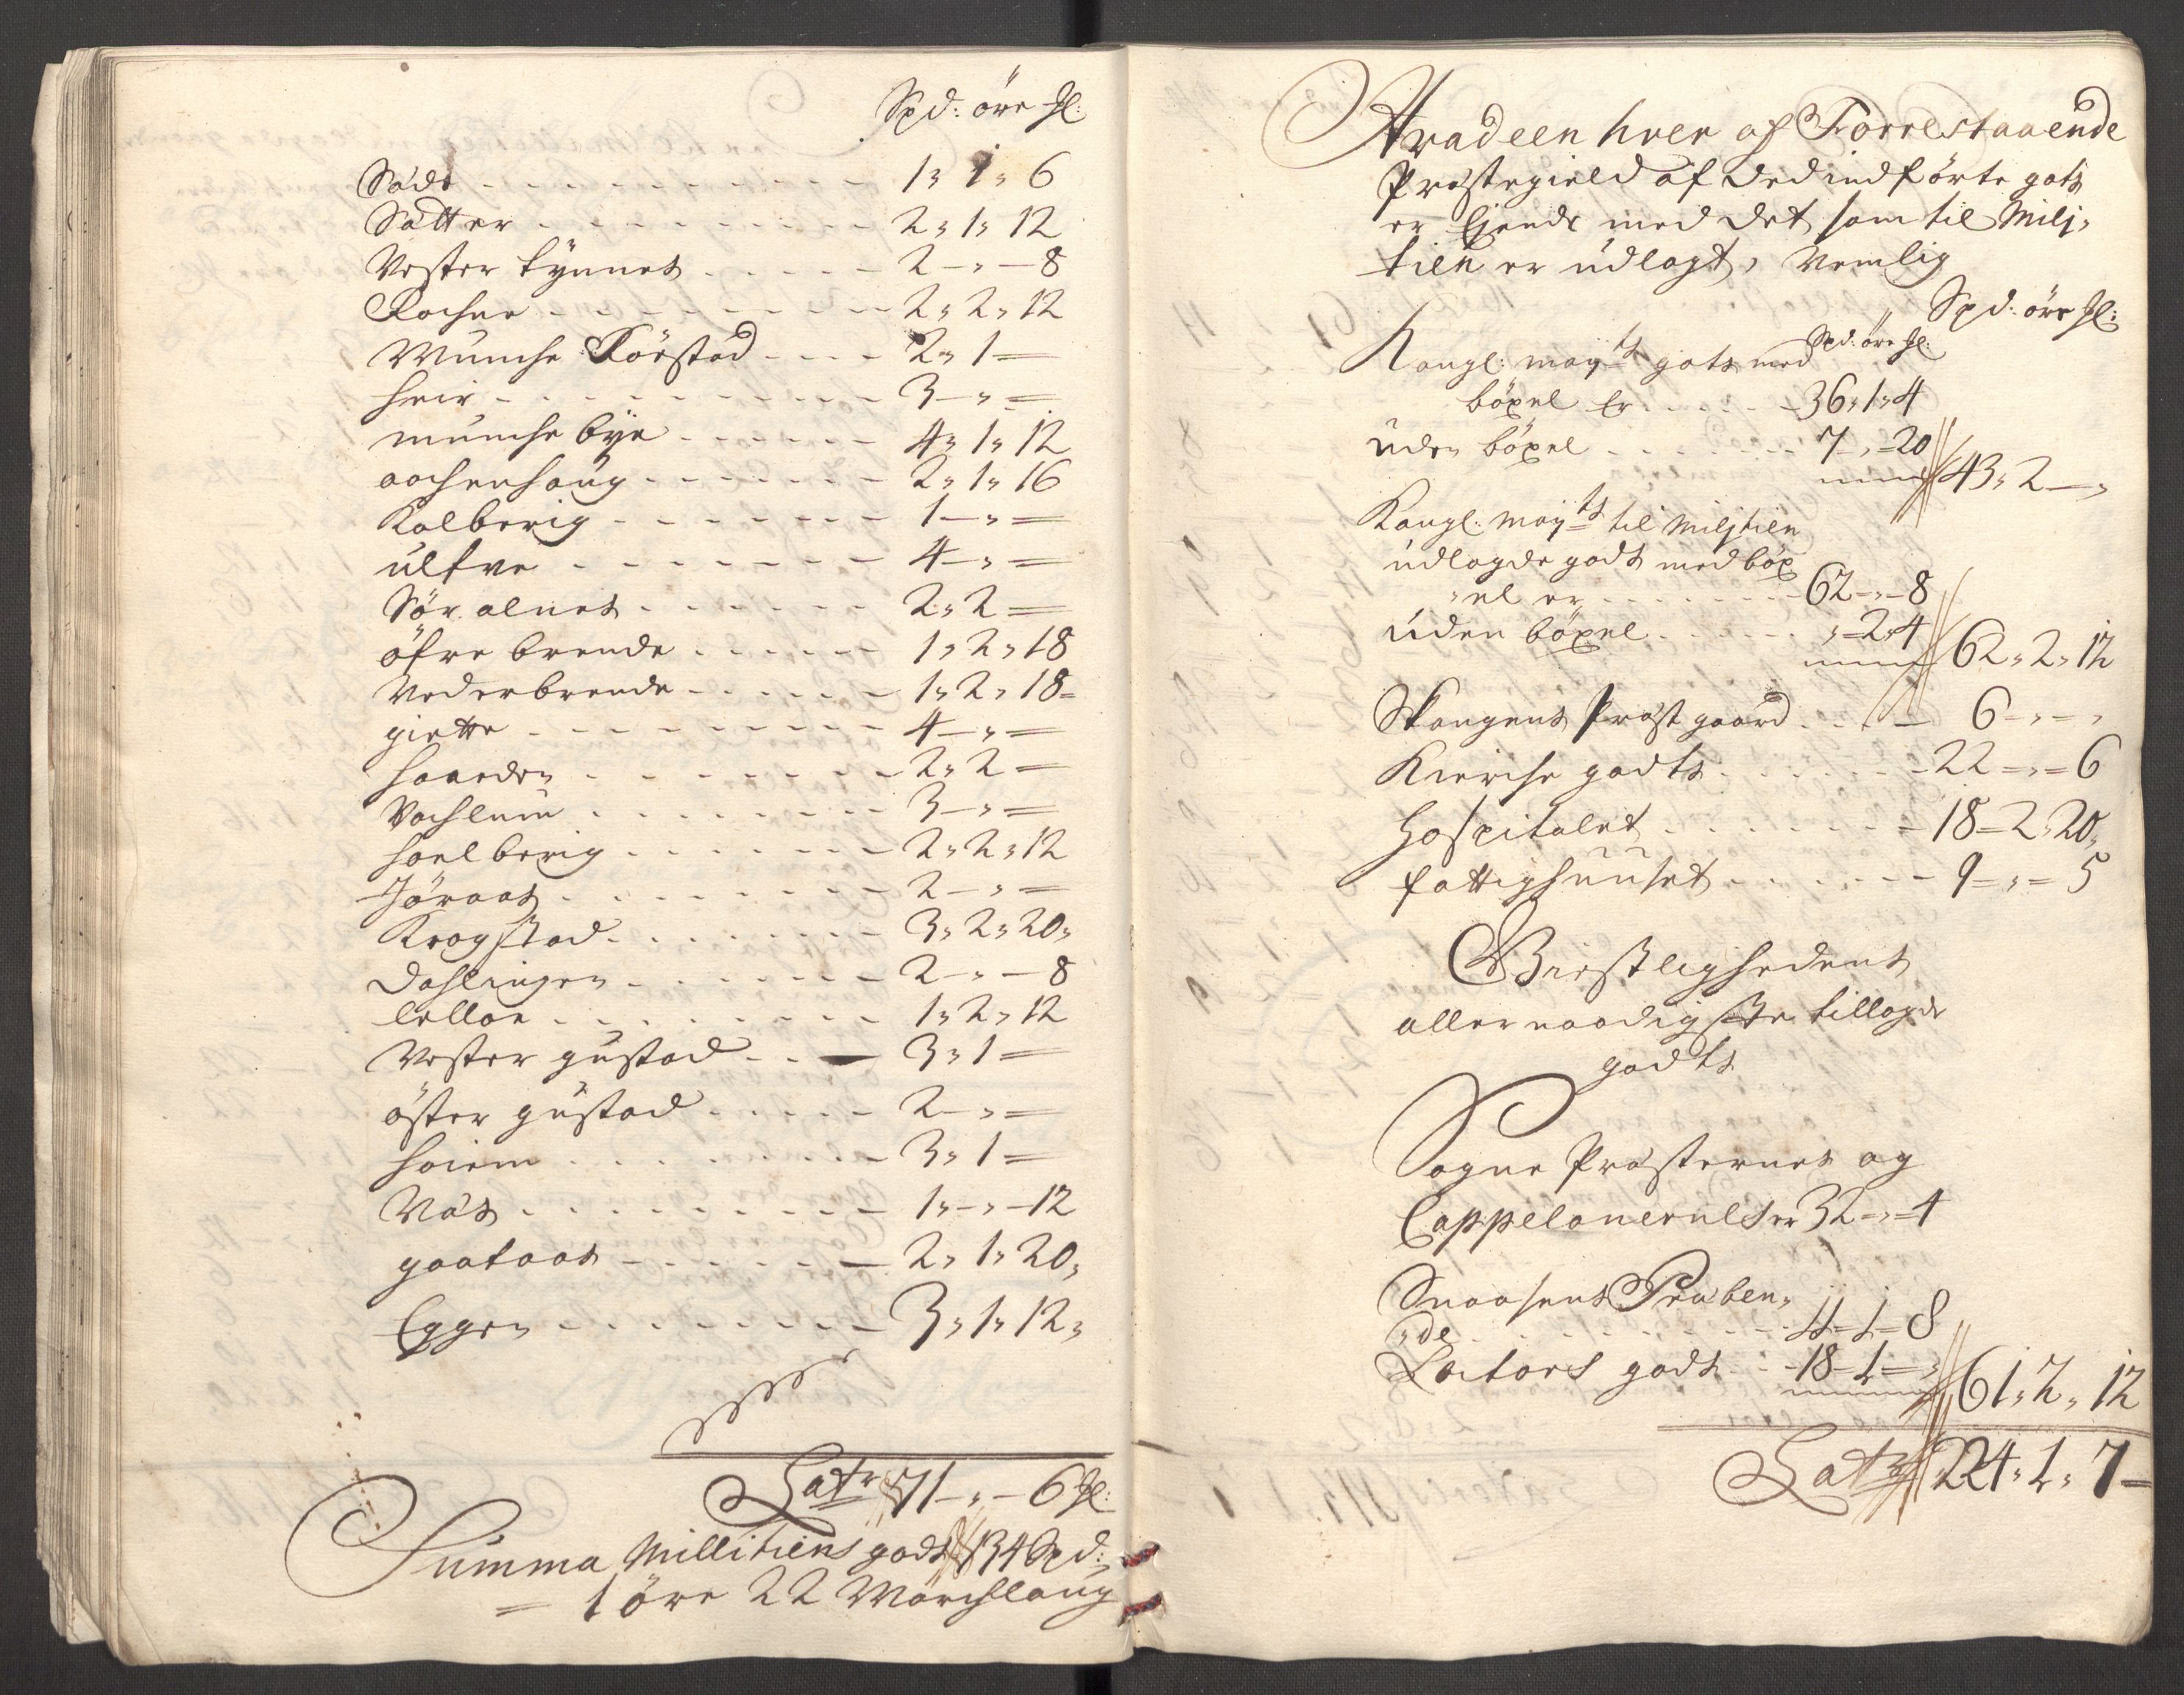 Spd: öre Ml:
Säds - - - - 1 " 1 " 6
Sætter - - - - 2 " 1 " 12
Vester Kynnes - - - - 2 - " - 8
- - - - 2 " 2 " 12
Munche Rörstad - - - - 2 " 1 =
- - - - 3 - " =
munche bye - - - - 4 " 1 " 12
aachenhaug - - - - 2 " 1 " 16
Kalberig - - - - 1 - " =
ulfve - - - - 4 - " =
Sör alnes - - - - 2 " 2 =
öfre brende - - - - 1 " 2 " 18
Nederbrende - - - - 1 " 2 " 18 =
giette - - - - 4 - " =
haarden - - - - 2 " 2 =
Vachlum - - - - 3 - " =
hoelberig - - - - 2 " 2 " 12
Jöraas - - - - 2 - " =
Krogstad - - - - 3 " 2 " 20 "
Dahlingen - - - - 2 - " - 8
lelloe - - - - 1 " 2 " 12
Vester gustad - - - - 3 " 1 =
öster gustad - - - - 2 - " =
hoiem - - - - 3 " 1 =
Väs - - - - 1 " - " - 12
gaataas - - - - 2 " 1 " 20 "
Eggen - - - - 3 " 1 " 12 "
Lat:r 71 - " - 6 Ml:
Summa Millitiens gods 134 Spd:
= 1 öre 22 Marchlaug
Hvad een hver af Forrestaaende
Præstegield af ded indförte gots
er Eiende med det som til Milj "
tien er udlagt, Nemlig
Spd: öre Ml:
Spd: öre Ml:
Kongl: may:ts gots med
böxel Er - - - - 36 " 1 " 4
uden böxel - - - - 7 - " - 20 43 " 2 - "
Kongl: may:ts til Miljtien
udlagde gods med böx
" el er - - - - 62 - " - 8
uden böxel - - - - " - 2 " 4 62 " 2 " 12
Stangens Præstgaard - - - - 6 - " - "
Kierche godts - - - - 22 = " = 6
Hospitalet - - - - 18 = 2 " 20 "
fattighuuset - - - - 9 = " = 5
Giestlighedens
allernaadigste tillagde
godts
Sogne Præsternes og
Cappelanernes er 32 - " - 4
Snaasens Præben "
" de - - - - 11 - 1 - 8
Lectors gods - - 18 - 1 = " 61 " 2 " 12
Lat:r 224 " 1 " 7 =